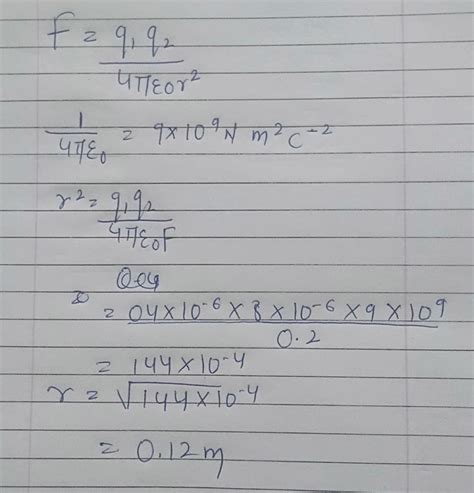 F = q₁ q₂ / 4πε0r²
1 / 4πε₀ = 9×10⁹ N m² C⁻²
r² = q₁q₂ / 4πε₀F
= 04×10⁻⁶ × 8 × 10⁻⁶ × 9 × 10⁹ / 0.2
= 144 × 10⁻⁴
r = √144×10⁻⁴
= 0.12m